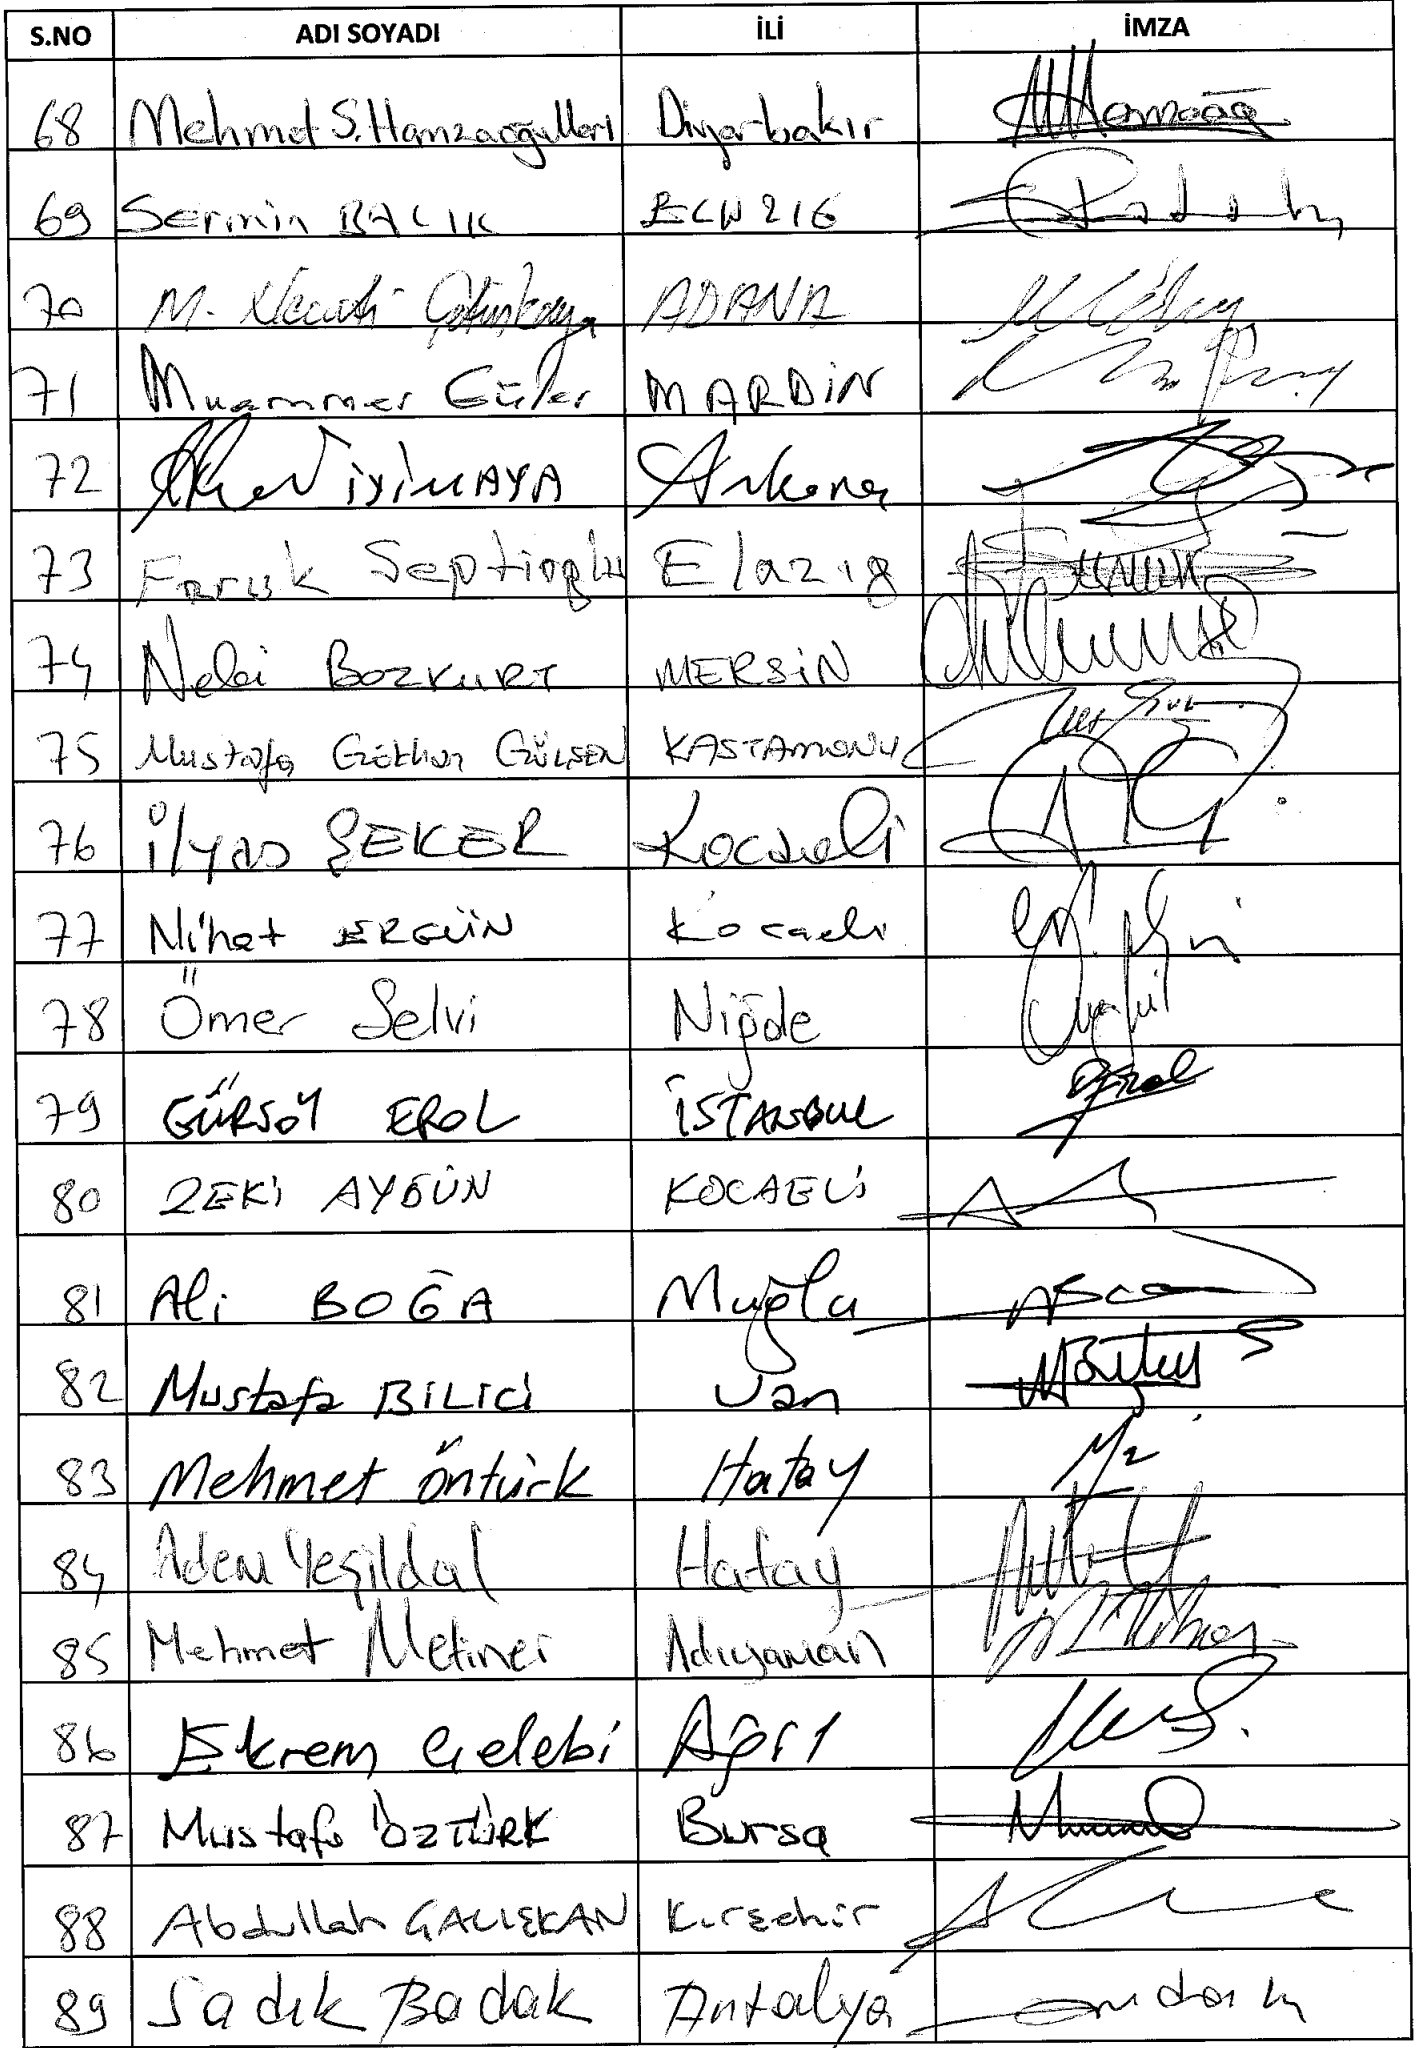 S.NO ADI SOYADI İLİ İMZA
68 Mehmet S. Hamzaoğulları Diyarbakır
69 Sermin BALIK ELAZIĞ
70 M. Necati Çetinkaya ADANA
71 Muammer Güler MARDİN
72 Ahmet İYİMAYA Ankara
73 Faruk Septioğlu Elazığ
74 Nebi BOZKURT MERSİN
75 Mustafa Gökhan GÜLŞEN KASTAMONU
76 İlyas ŞEKER Kocaeli
77 Nihat ERGÜN Kocaeli
78 Ömer Selvi Niğde
79 GÜRSOY EROL İSTANBUL
80 ZEKİ AYGÜN KOCAELİ
81 Ali BOĞA Muğla
82 Mustafa BİLİCİ Van
83 Mehmet Öntürk Hatay
84 Adem Yeşildal Hatay
85 Mehmet Metiner Adıyaman
86 Ekrem Çelebi Ağrı
87 Mustafa ÖZTÜRK Bursa
88 Abdullah ÇALIŞKAN Kırşehir
89 Sadık Badak Antalya